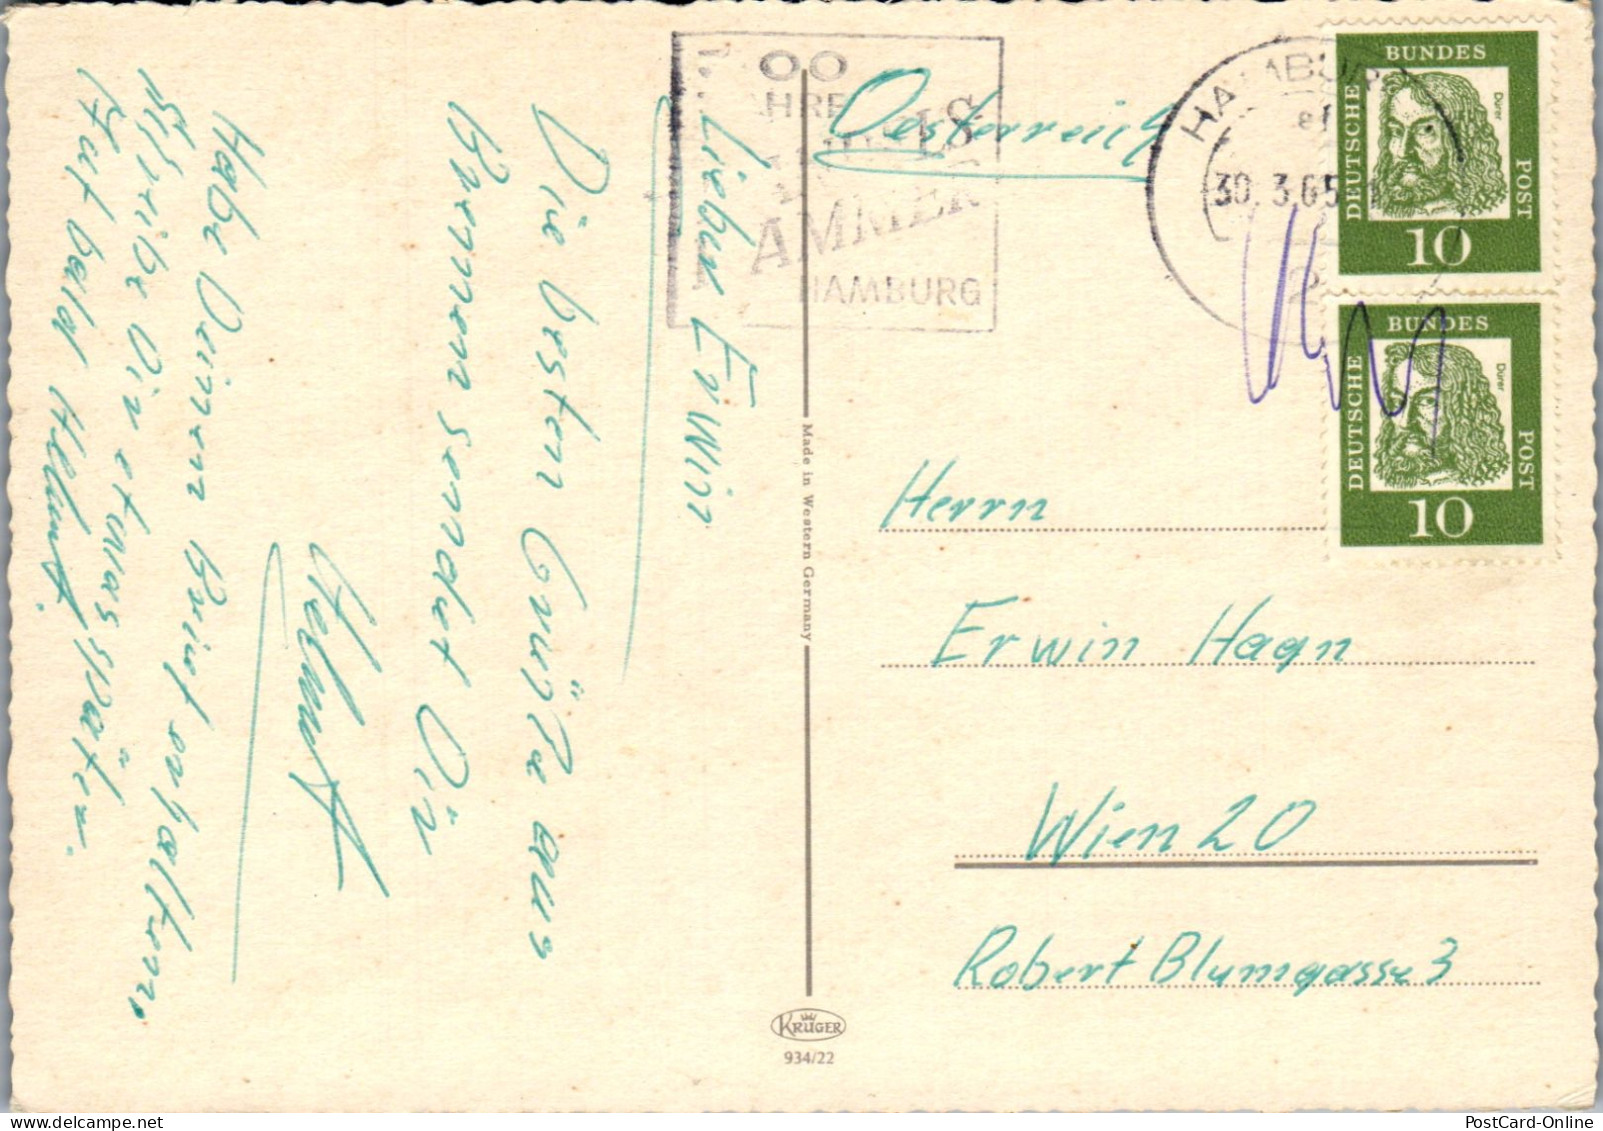 Lieber Erwin
Die besten Grüße aus
Bremen sendet Dir
Helmut
Habe Deinen Brief erhalten,
schreibe Dir etwas später.
Auf bald Helmut.
00
HRE
LS
AMMER
HAMBURG
Oesterreich
HAMBURG
30. 3.65
2
BUNDES
DEUTSCHE
POST
Dürer
10
BUNDES
DEUTSCHE
POST
Dürer
10
Herrn
Erwin Hagn
Wien 20
Robert Blumgasse 3
Made in Western Germany
KRÜGER
934/22
PostCard-Online